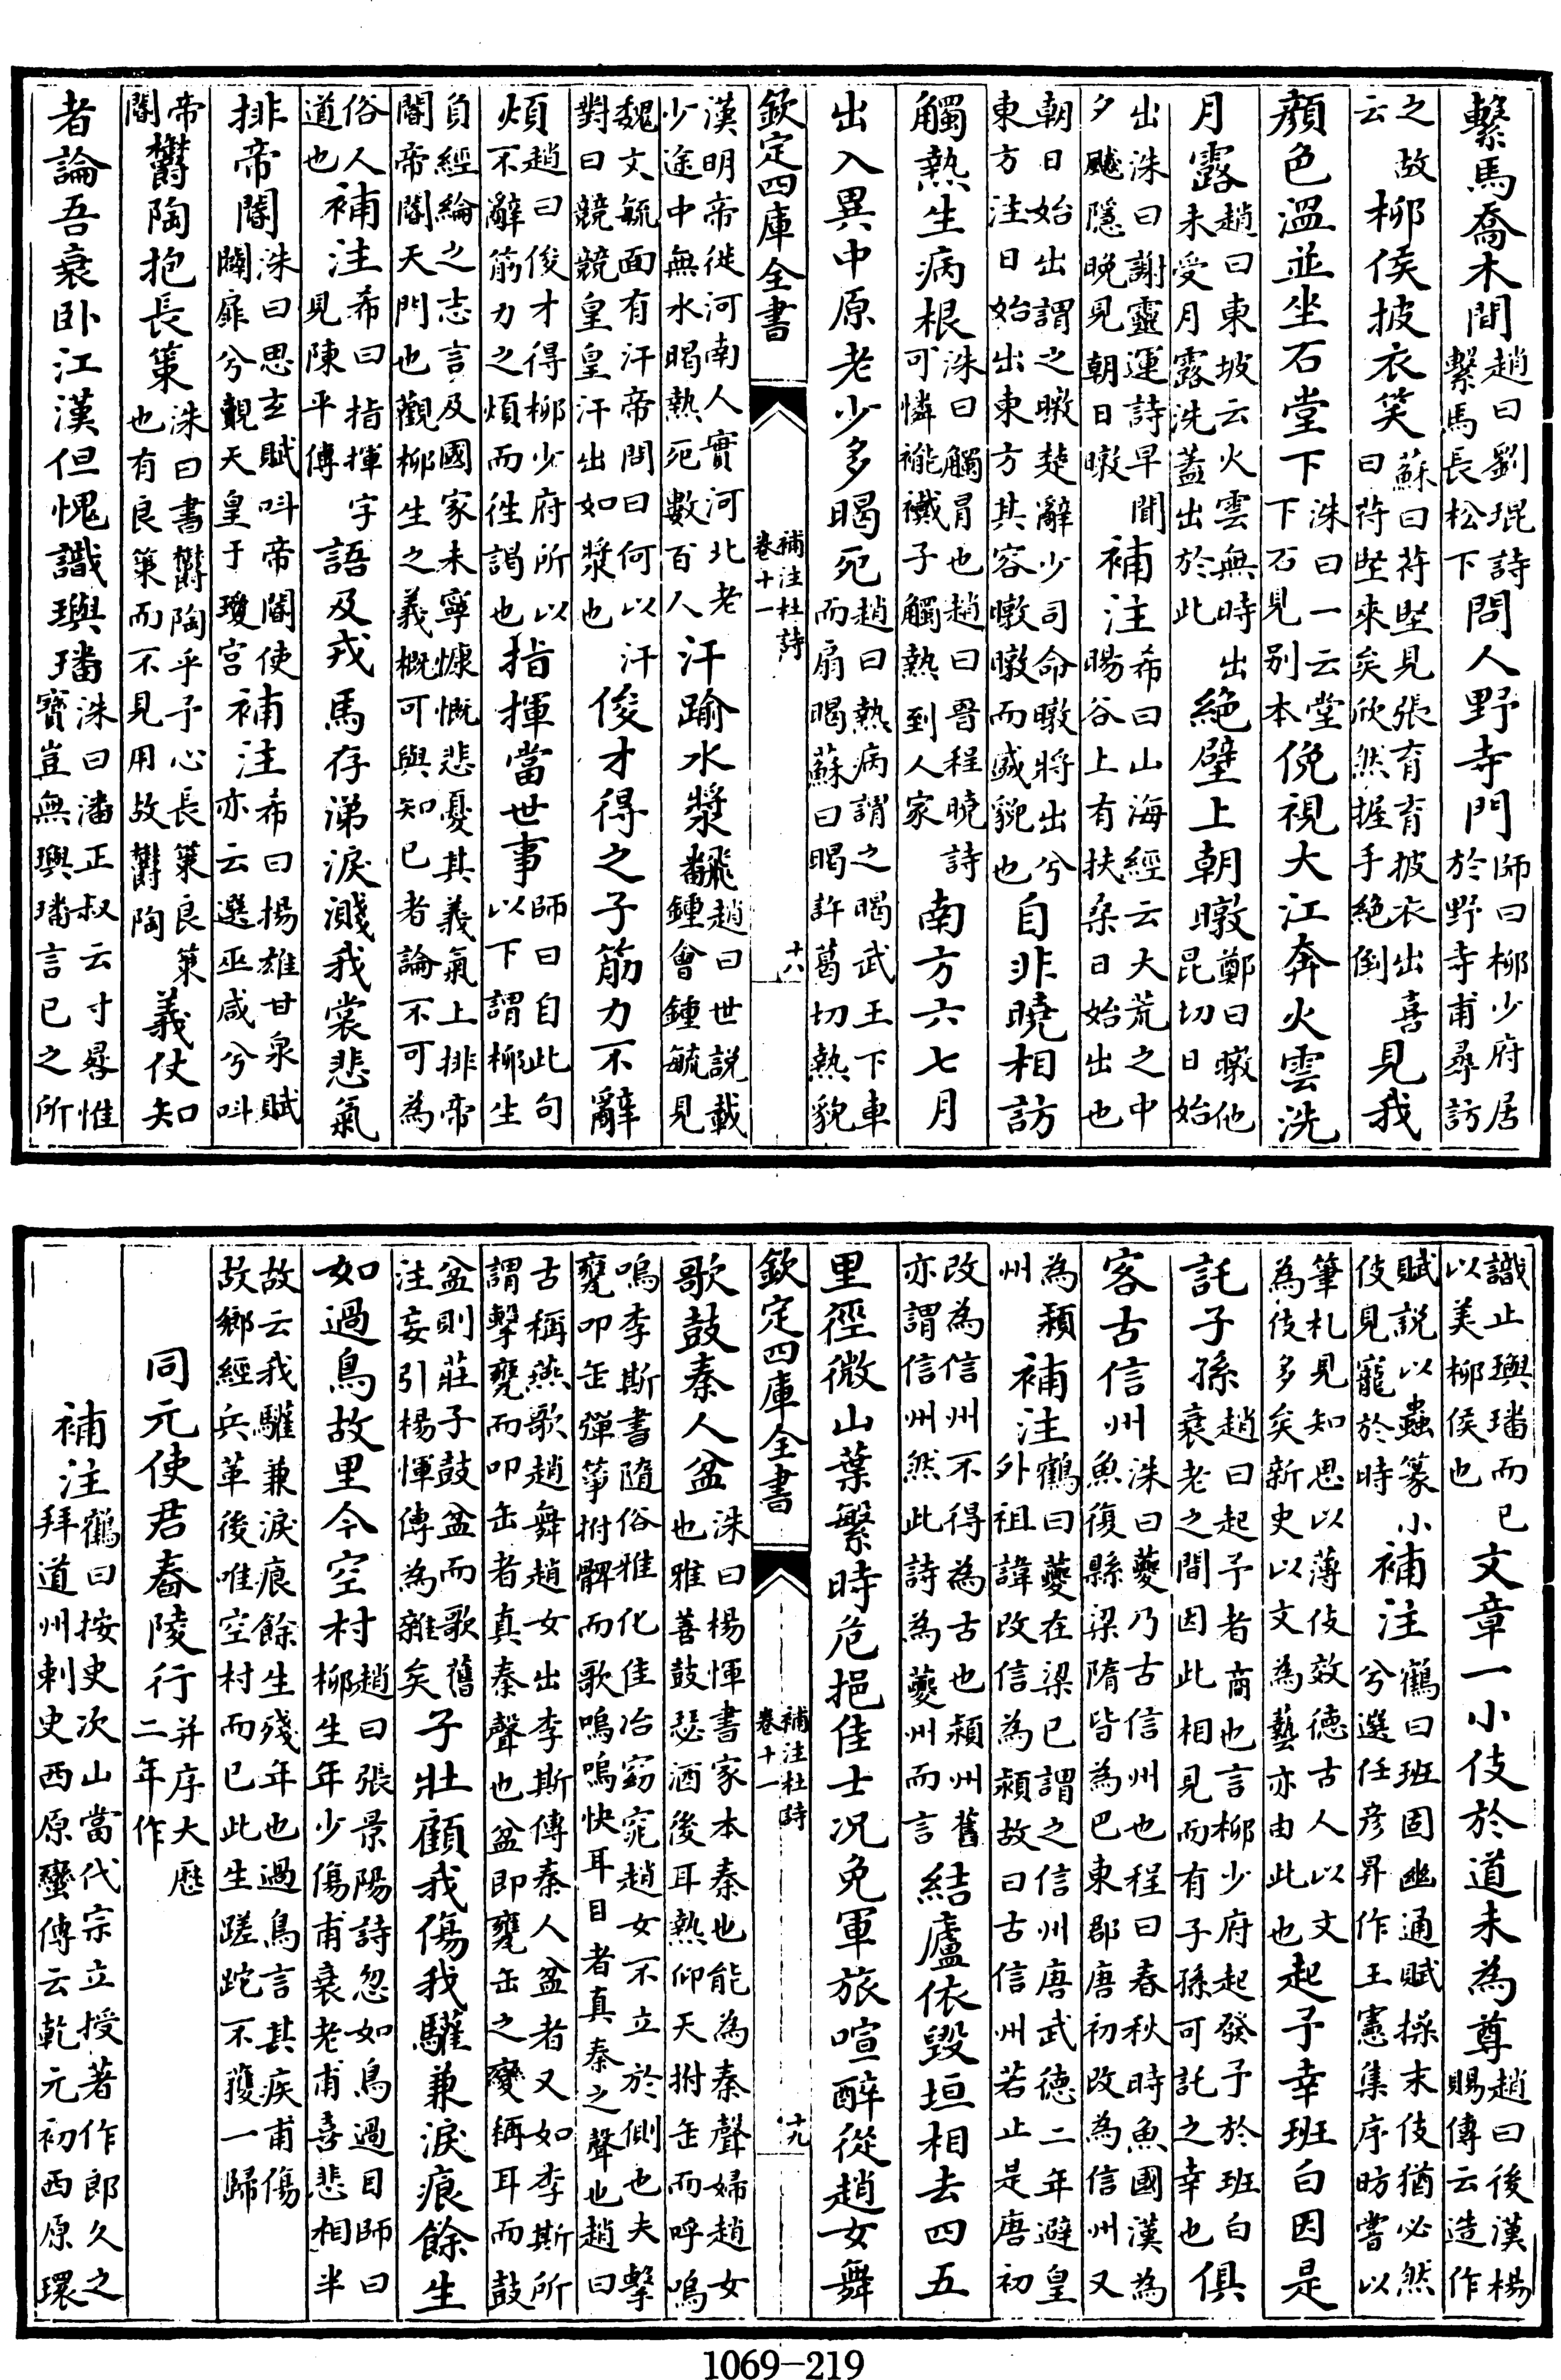 繫馬喬木間趙曰劉琨詩繫馬長松下問人野寺門師曰柳少府居於野寺甫尋訪
之故云柳侯披衣笑蘇曰苻堅見張育育披衣出喜曰苻堅來矣欣然握手絶倒見我
顔色溫並坐石堂下洙曰一云堂下石見別本俛視大江奔火雲洗
月露趙曰東坡云火雲無時出未受月露洗蓋出於此絶壁上朝暾鄭曰暾他昆切日始
出洙曰謝靈運詩早聞夕飈隱晚見朝日暾補注希曰山海經云大荒之中暘谷上有扶桒日始出也
朝日始出謂之暾楚辭少司命暾將出兮東方注日始出東方其容暾暾而盛貌也自非曉相訪
觸熱生病根洙曰觸冒也趙曰晉程曉詩可憐褦襶子觸熱到人家南方六七月
出入異中原老少多暍死趙曰熱病謂之暍武王下車而扇暍蘇曰暍許葛切熱貌
欽定四庫全書 補注杜詩卷十一 十八
漢明帝徙河南人實河北老少途中無水暍熱死數百人汗踰水漿飜趙曰世説載鍾會鍾毓見
魏文毓面有汗帝問曰何以汗對曰競競皇皇汗出如漿也俊才得之子筋力不辭
煩趙曰俊才得柳少府所以不辭筋力之煩而徃謁也指揮當世事師曰自此句以下謂柳生
負經綸之志言及國家未寧慷慨悲憂其義氣上排帝閽帝閽天門也觀柳生之義概可與知已者論不可為
俗人道也補注希曰指揮字見陳平傳語及戎馬存涕淚濺我裳悲氣
排帝閽洙曰思玄賦叫帝閽使闢扉兮覿天皇于瓊宮補注希曰揚雄甘泉賦亦云選巫咸兮叫
帝閽鬱陶抱長策洙曰書鬱陶乎予心長策良策也有良策而不見用故鬱陶義仗知
者論吾衰卧江漢但愧識璵璠洙曰潘正叔云寸晷惟寶豈無璵璠言已之所
識止璵璠而已以美柳侯也文章一小伎於道未為尊趙曰後漢楊賜傳云造作
賦説以蟲篆小伎見寵於時補注鶴曰班固幽通賦操末伎猶必然兮選任彦昇作王憲集序昉嘗以
筆札見知思以薄伎效德古人以文為伎多矣新史以文為藝亦由此也起予幸班白因是
託子孫趙曰起予者商也言柳少府起發予於班白衰老之間因此相見而有子孫可託之幸也俱
客古信州洙曰夔乃古信州也程曰春秋時魚國漢為魚復縣梁隋皆為巴東郡唐初改為信州又
為潁州補注鶴曰夔在梁已謂之信州唐武德二年避皇外祖諱改信為潁故曰古信州若止是唐初
改為信州不得為古也潁州舊亦謂信州然此詩為夔州而言結廬依毀垣相去四五
里徑微山葉繁時危挹佳士況免軍旅喧醉從趙女舞
欽定四庫全書 補注杜詩卷十一 十九
歌鼓秦人盆洙曰楊惲書家本秦也能為秦聲婦趙女也雅善鼓瑟酒後耳熱仰天拊缶而呼嗚
嗚李斯書隨俗雅化佳冶窈窕趙女不立於側也夫擊甕叩缶彈箏拊髀而歌嗚嗚快耳目者真秦之聲也趙曰
古稱燕歌趙舞趙女出李斯傳秦人盆者又如李斯所謂擊甕而叩缶者真秦聲也盆即甕缶之變稱耳而鼓
盆則莊子鼓盆而歌舊注妄引楊惲傳為雜矣子壯顧我傷我驩兼淚痕餘生
如過鳥故里今空村趙曰張景陽詩忽如鳥過目師曰柳生年少傷甫衰老甫喜悲相半
故云我驩兼淚痕餘生殘年也過鳥言其疾甫傷故鄉經兵革後唯空村而已此生蹉跎不獲一歸
同元使君舂陵行并序大厯二年作
補注鶴曰按史次山當代宗立授著作郎久之拜道州刺史西原蠻傳云乾元初西原環
1069-219